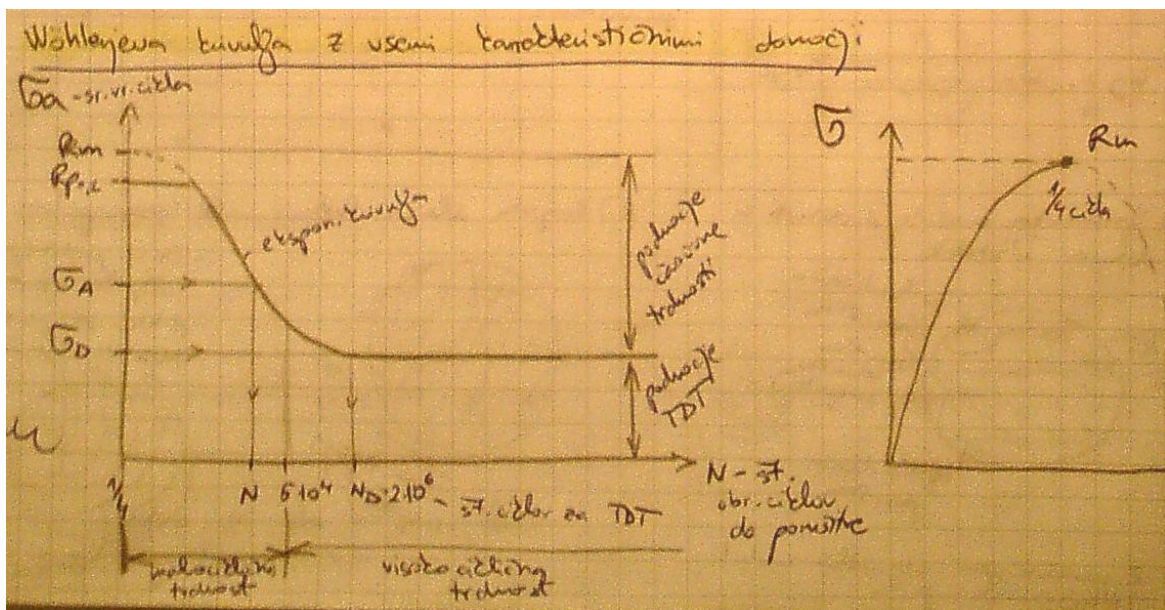 Wöhlerjeva krivulja z vsemi karakterističnimi območji
σa - sr. vr. cikla
Rm
Rp0,2
ekspon. krivulja
σA
σD
področje
časovne
trdnosti
področje
TDT
1/4
N
5·10⁴
ND=2·10⁶ - št. ciklov za TDT
N - št.
obr. ciklov
do porušitve
malociklična
trdnost
visokociklična
trdnost
σ
Rm
1/4 cikla